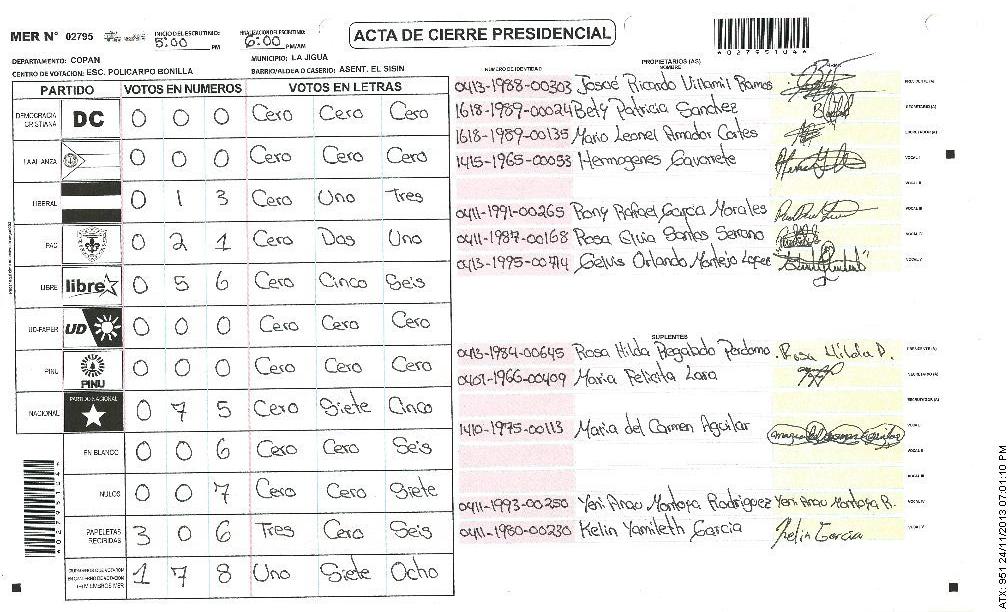 MER N° 02795
INICIO DEL ESCRUTINIO: 5:00 PM
FINALIZACION DEL ESCRUTINIO: 6:00 PM/AM
ACTA DE CIERRE PRESIDENCIAL
A027951044
DEPARTAMENTO: COPAN
MUNICIPIO: LA JIGUA
CENTRO DE VOTACION: ESC. POLICARPO BONILLA
BARRIO/ALDEA O CASERIO: ASENT. EL SISIN
PARTIDO VOTOS EN NUMEROS VOTOS EN LETRAS
DEMOCRACIA CRISTIANA DC 0 0 0 Cero Cero Cero
LA ALIANZA 0 0 0 Cero Cero Cero
LIBERAL 0 1 3 Cero Uno Tres
PAC 0 2 1 Cero Dos Uno
LIBRE libre 0 5 6 Cero Cinco Seis
UD-FAPER UD 0 0 0 Cero Cero Cero
PINU PINU 0 0 0 Cero Cero Cero
NACIONAL PARTIDO NACIONAL 0 7 5 Cero Siete Cinco
EN BLANCO 0 0 6 Cero Cero Seis
NULOS 0 0 7 Cero Cero Siete
PAPELETAS RECIBIDAS 3 0 6 Tres Cero Seis
1 7 8 Uno Siete Ocho
A027951044
PROPIETARIOS (AS)
NUMERO DE IDENTIDAD NOMBRE
0413-1988-00303 Josué Ricardo Villamil Ramos PRESIDENTE (A)
1618-1989-00024 Bety Patricia Sanchez SECRETARIO (A)
1618-1989-00135 Mario Leonel Amador Cortes ESCRUTADOR (A)
1415-1965-00053 Hermogenes VOCAL I
VOCAL II
0411-1991-00265 Rony Rafael Garcia Morales VOCAL III
0411-1987-00168 Rosa Santos Serrano VOCAL IV
0413-1995-00714 Gelvis Orlando Montejo Lopez VOCAL V
SUPLENTES
0413-1984-00645 Rosa Hilda Regalado Perdomo Rosa Hilda P. PRESIDENTE (A)
0401-1966-00409 Maria Felicita Lara SECRETARIO (A)
ESCRUTADOR (A)
1410-1975-00113 Maria del Carmen Aguilar VOCAL I
VOCAL II
VOCAL III
0411-1993-00250 Yeni Montoya Rodriguez Yeni Montoya R. VOCAL IV
0411-1980-00230 Kelin Yamileth Garcia Kelin Garcia VOCAL V
ATX: 951 24/11/2013 07:01:10 PM